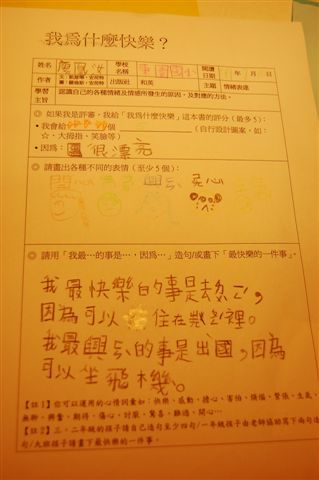 我為什麼快樂？
姓名
學校名稱 國小
閱讀日期 年 月 日
作者
出版社 和英
主題 情緒表達
學習主旨 認識自己的各種情緒及情感所發生的原因，及對應的方法。
◎ 如果我是評審，我給「我為什麼快樂」這本書的評分（最多5）：
・我會給 個 （自行設計圖案，如：
☆、大拇指、笑臉等）
・因為： 很漂亮
◎ 請畫出各種不同的表情（至少5個）：
開心
◎ 請用「我最…的事是…，因為…」造句/或畫下「最快樂的一件事」。
我最快樂的事是去
因為可以 住在 裡。
我最興 的事是出國，因為
可以坐飛機。
【註1】你可以運用的心情詞彙如：快樂、感動、擔心、害怕、煩惱、緊張、生氣、
無聊、興奮、期待、傷心、討厭、驚喜、難過、開心…
【註2】三、二年級的孩子請自己造句至少四句/一年級孩子由老師協助寫下兩句造
句/大班孩子請畫下最快樂的一件事。